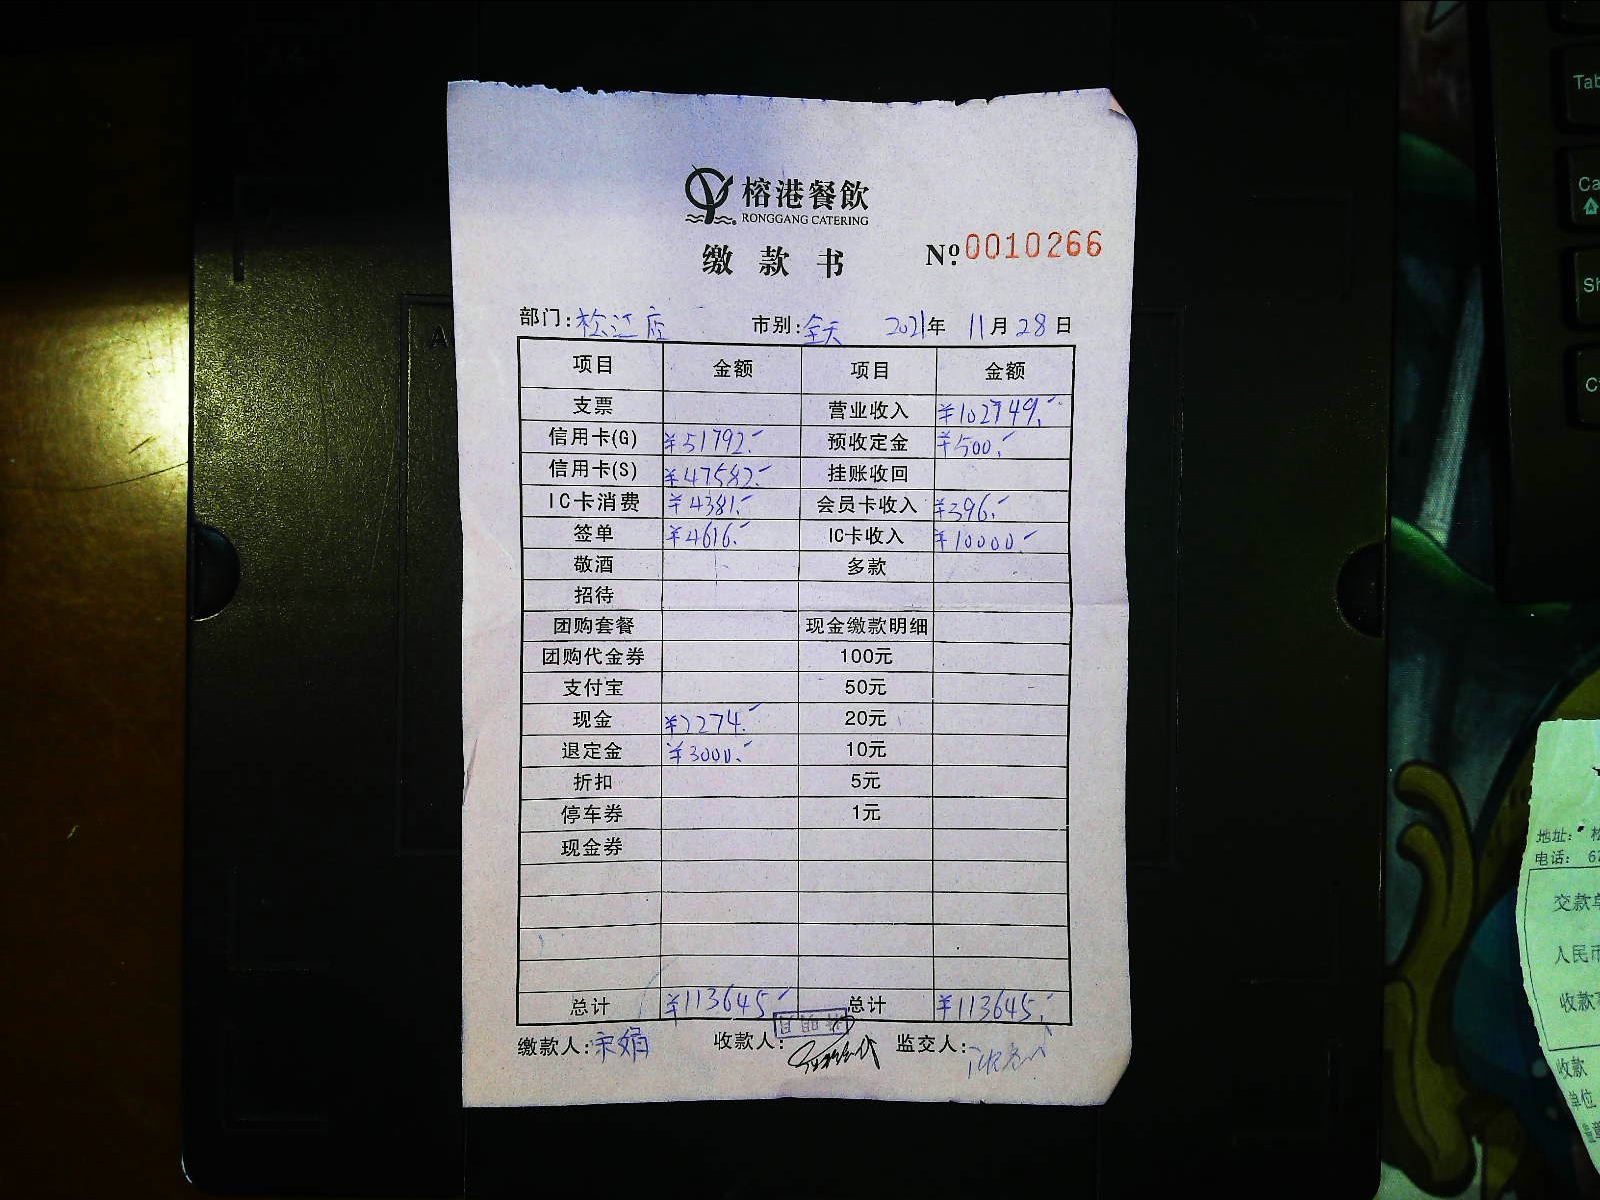 榕港餐飲
RONGGANG CATERING
缴款书 Nº:0010266
部门:松江店 市别:全天 2021年 11月28日
项目 金额 项目 金额
支票 营业收入 ¥102749.-
信用卡(G) ¥51792.- 预收定金 ¥500.-
信用卡(S) ¥47582.- 挂账收回
IC卡消费 ¥4381.- 会员卡收入 ¥396.-
签单 ¥4616.- IC卡收入 ¥10000.-
敬酒 多款
招待
团购套餐 现金缴款明细
团购代金券 100元
支付宝 50元
现金 ¥2274.- 20元
退定金 ¥3000.- 10元
折扣 5元
停车券 1元
现金券
总计 ¥113645.- 总计 ¥113645.-
缴款人:宋娟 收款人: 监交人:
Tab
地址:
电话: 6
交款单
人民币
收款
收款
单位